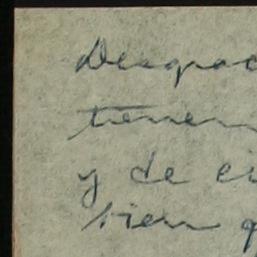 Desgrac
tienen
y de ei
bien q